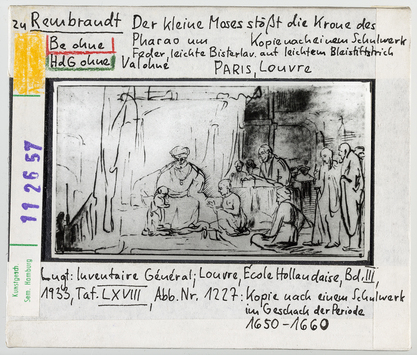 zu Rembrandt Der kleine Moses stößt die Krone des
Be ohne Pharao um Kopie nach einem Schulwerk
HdG ohne Feder, leichte Bisterlav. auf leichtem Bleistiftstrich
Val ohne PARIS, Louvre
11 26 57
Kunstgesch.
Sem. Hamburg
Lugt: Inventaire Général; Louvre, École Hollandaise, Bd. III,
1933, Taf. LXVIII, Abb. Nr. 1227: Kopie nach einem Schulwerk
im Geschmack der Periode
1650-1660